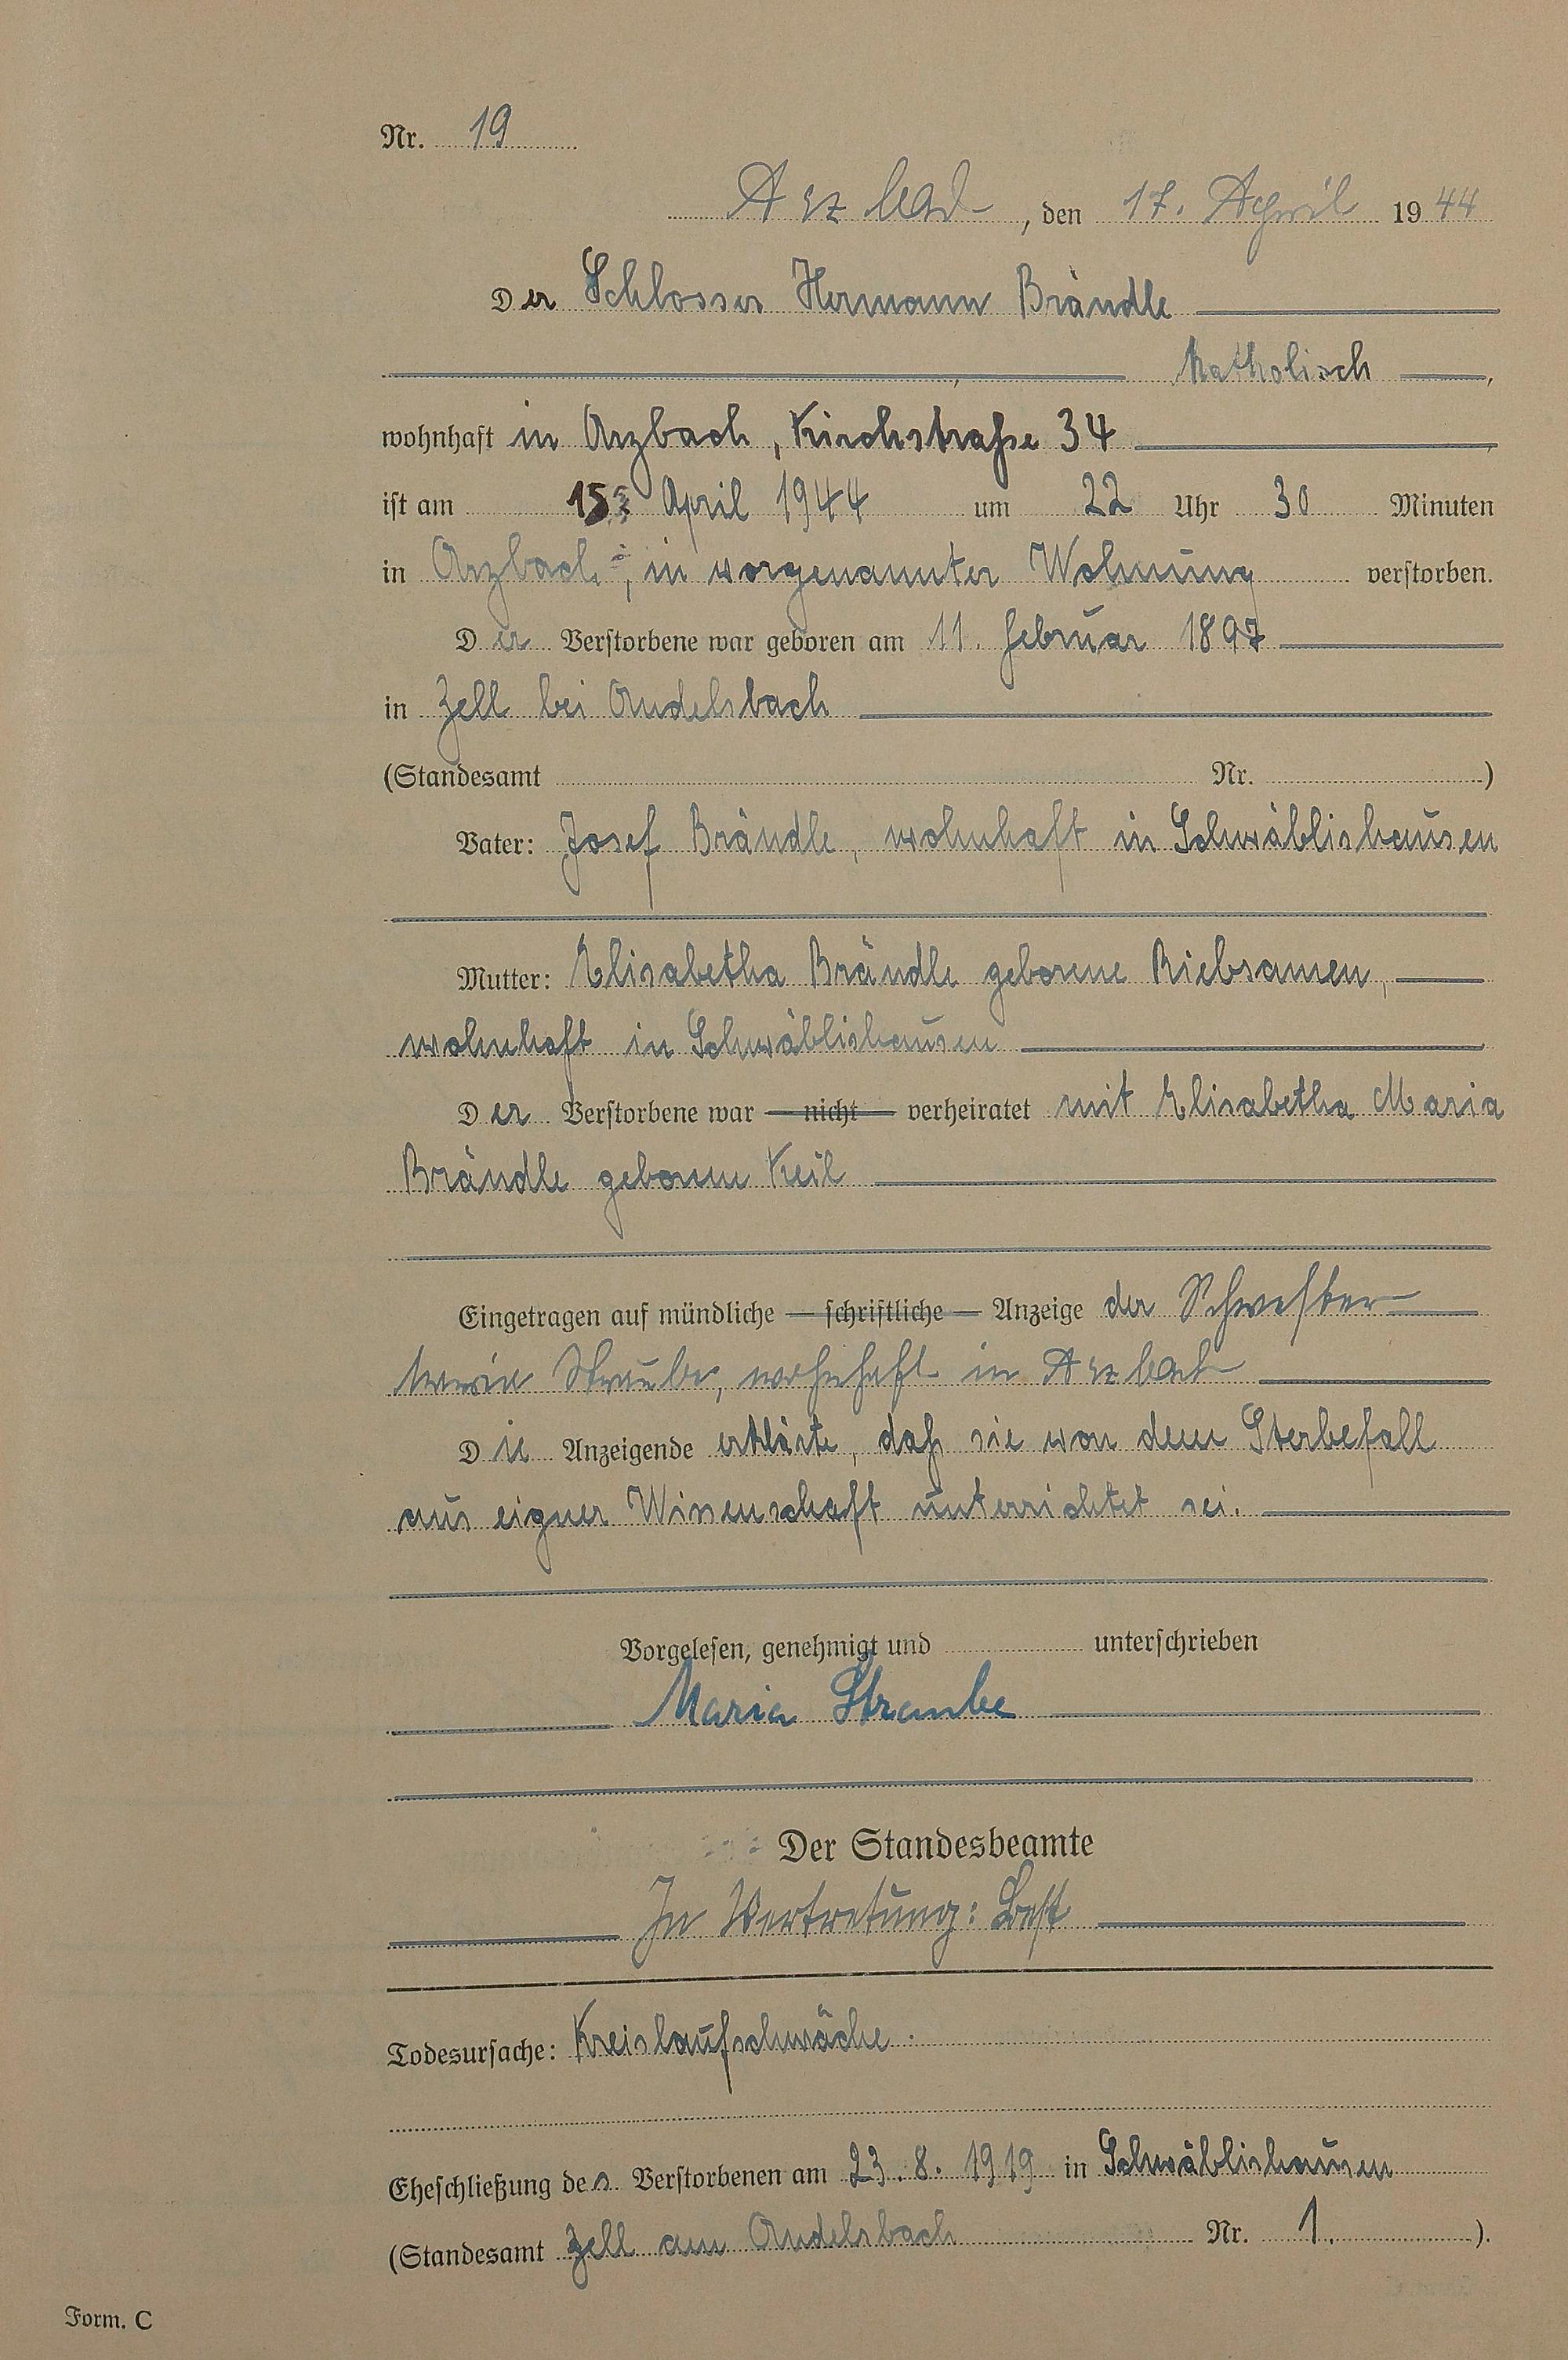 Nr. 19
Arzbach, den 17. April 1944
Der Schlosser Hermann Brändle
katholisch,
wohnhaft in Arzbach, Kirchstraße 34
ist am 15. April 1944 um 22 Uhr 30 Minuten
in Arzbach, in vorgenannter Wohnung verstorben.
Der Verstorbene war geboren am 11. Februar 1897
in Zell bei Andelsbach
(Standesamt Nr. )
Vater: Josef Brändle, wohnhaft in Schwäblishausen
Mutter: Elisabetha Brändle geborene Riebsamen,
wohnhaft in Schwäblishausen
Der Verstorbene war nicht verheiratet mit Elisabetha Maria
Brändle geborene Keil
Eingetragen auf mündliche schriftliche Anzeige der Schwester
Maria Straube, wohnhaft in Arzbach
Die Anzeigende erklärte, daß sie von dem Sterbefall
aus eigner Wissenschaft unterrichtet sei.
Vorgelesen, genehmigt und unterschrieben
Maria Straube
Der Standesbeamte
In Vertretung: Best
Todesursache: Kreislaufschwäche.
Eheschließung des Verstorbenen am 23.8.1919 in Schwäblishausen
(Standesamt Zell am Andelsbach Nr. 1.).
Form. C